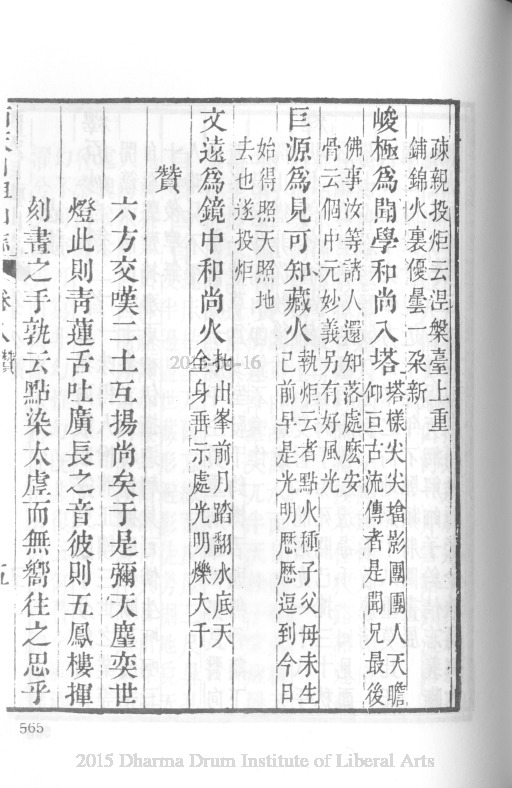 疎親投炬云涅槃臺上重
鋪錦火裏優曇一朶新
峻極爲聞學和尚入塔 塔樣尖尖檐影團團人天瞻
仰亘古流傳者是聞兄最後
佛事汝等諸人還知落處麽安
骨云個中元妙義另有好風光
巨源爲見可知藏火 執炬云者點火種子父母未生
己前早是光明歷歷逗到今日
始得照天照地
去也遂投炬
文遠爲鏡中和尚火 出峯前月踏翻水底天
全身垂示處光明爍大千
贊
六方交嘆二土互揚尚矣于是彌天麈奕世
燈此則靑蓮舌吐廣長之音彼則五鳳樓揮
刻畫之手孰云點染太虛而無嚮往之思乎
卷八
五
565
2015 Dharma Drum Institute of Liberal Arts